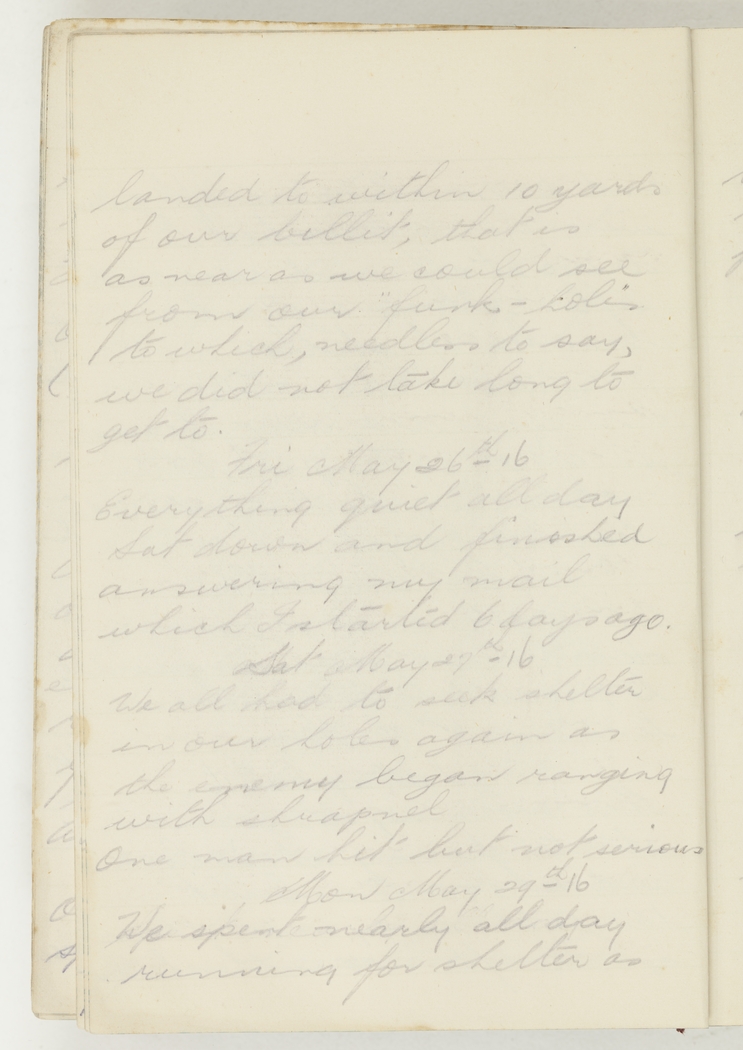 landed to within 10 yards
of our billit, that is
as near as we could see
from our "funk-holes"
to which, needless to say,
we did not take long to
get to.
Fri May 26th 16
Everything quiet all day
Sat down and finished
answering my mail
which I started 6 days ago.
Sat May 27th 16
We all had to seek shelter
in our holes again as
the enemy began ranging
with shrapnel
One man hit but not serious
Mon May 29th 16
We spent nearly all day
running for shelter as